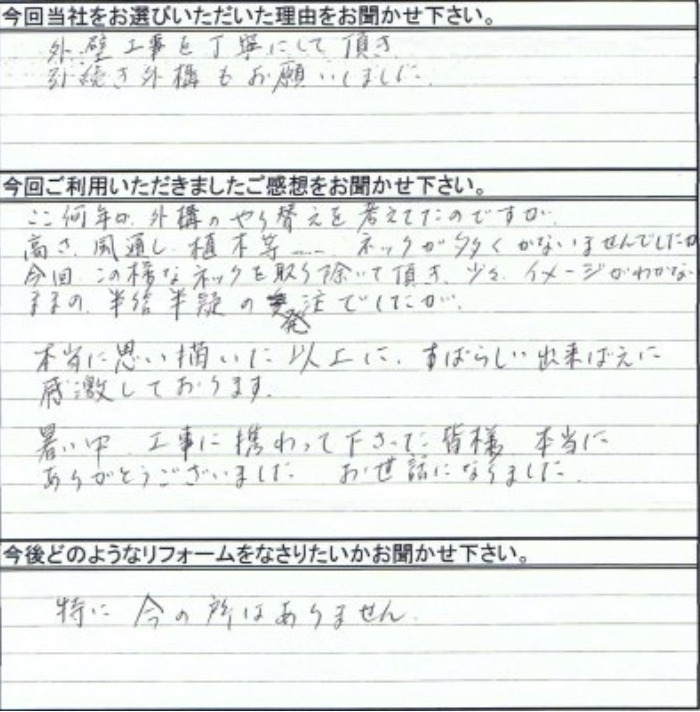 今回当社をお選びいただいた理由をお聞かせ下さい。
外壁工事を丁寧にして頂き
引続き外構もお願いしました。
今回ご利用いただきましたご感想をお聞かせ下さい。
ここ何年か、外構のやり替えを考えてたのですが、
高さ、風通し、植木等…… ネックが多くかないませんでしたが
今回、この様なネックを取り除いて頂き、少々、イメージがわかない
ままの、半信半疑の発注でしたが、
本当に思い描いた以上に、すばらしい出来ばえに
感激しております。
暑い中、工事に携わって下さった皆様、本当に
ありがとうございました お世話になりました。
今後どのようなリフォームをなさりたいかお聞かせ下さい。
特に 今の所はありません。